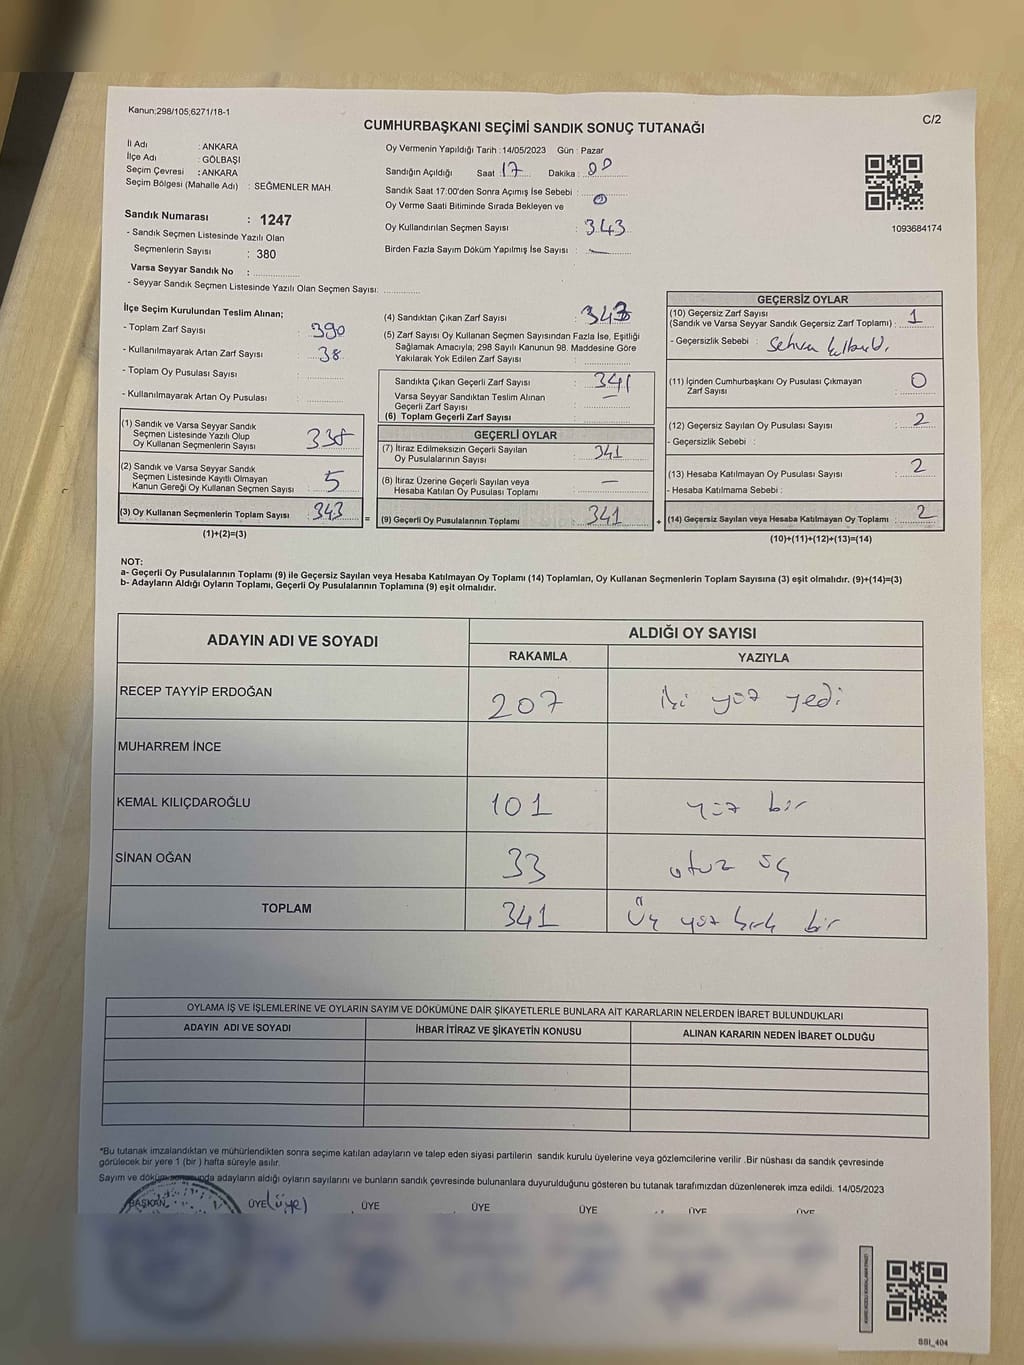 Kanun;298/105;6271/18-1
C/2
CUMHURBAŞKANI SEÇİMİ SANDIK SONUÇ TUTANAĞI
İl Adı : ANKARA
İlçe Adı : GÖLBAŞI
Seçim Çevresi : ANKARA
Seçim Bölgesi (Mahalle Adı) : SEĞMENLER MAH.
Sandık Numarası : 1247
- Sandık Seçmen Listesinde Yazılı Olan
Seçmenlerin Sayısı : 380
Varsa Seyyar Sandık No :
- Seyyar Sandık Seçmen Listesinde Yazılı Olan Seçmen Sayısı:
Oy Vermenin Yapıldığı Tarih :14/05/2023 Gün : Pazar
Sandığın Açıldığı Saat : 17 Dakika : 00
Sandık Saat 17:00'den Sonra Açımış İse Sebebi :
Oy Verme Saati Bitiminde Sırada Bekleyen ve 0
Oy Kullandırılan Seçmen Sayısı : 343
Birden Fazla Sayım Döküm Yapılmış İse Sayısı : —
1093684174
İlçe Seçim Kurulundan Teslim Alınan;
- Toplam Zarf Sayısı : 390
- Kullanılmayarak Artan Zarf Sayısı : 38
- Toplam Oy Pusulası Sayısı :
- Kullanılmayarak Artan Oy Pusulası :
(1) Sandık ve Varsa Seyyar Sandık
Seçmen Listesinde Yazılı Olup
Oy Kullanan Seçmenlerin Sayısı : 338
(2) Sandık ve Varsa Seyyar Sandık
Seçmen Listesinde Kayıtlı Olmayan
Kanun Gereği Oy Kullanan Seçmen Sayısı : 5
(3) Oy Kullanan Seçmenlerin Toplam Sayısı : 343
(1)+(2)=(3)
=
(4) Sandıktan Çıkan Zarf Sayısı : 343
(5) Zarf Sayısı Oy Kullanan Seçmen Sayısından Fazla İse, Eşitliği
Sağlamak Amacıyla; 298 Sayılı Kanunun 98. Maddesine Göre
Yakılarak Yok Edilen Zarf Sayısı :
Sandıkta Çıkan Geçerli Zarf Sayısı : 341
Varsa Seyyar Sandıktan Teslim Alınan —
Geçerli Zarf Sayısı :
(6) Toplam Geçerli Zarf Sayısı :
GEÇERLİ OYLAR
(7) İtiraz Edilmeksizin Geçerli Sayılan
Oy Pusulalarının Sayısı : 341
(8) İtiraz Üzerine Geçerli Sayılan veya
Hesaba Katılan Oy Pusulası Toplamı : —
(9) Geçerli Oy Pusulalarının Toplamı : 341
+
GEÇERSİZ OYLAR
(10) Geçersiz Zarf Sayısı
(Sandık ve Varsa Seyyar Sandık Geçersiz Zarf Toplamı) : 1
- Geçersizlik Sebebi : Sehven
(11) İçinden Cumhurbaşkanı Oy Pusulası Çıkmayan
Zarf Sayısı : 0
(12) Geçersiz Sayılan Oy Pusulası Sayısı : 2
- Geçersizlik Sebebi :
(13) Hesaba Katılmayan Oy Pusulası Sayısı : 2
- Hesaba Katılmama Sebebi :
(14) Geçersiz Sayılan veya Hesaba Katılmayan Oy Toplamı : 2
(10)+(11)+(12)+(13)=(14)
NOT:
a- Geçerli Oy Pusulalarının Toplamı (9) ile Geçersiz Sayılan veya Hesaba Katılmayan Oy Toplamı (14) Toplamları, Oy Kullanan Seçmenlerin Toplam Sayısına (3) eşit olmalıdır. (9)+(14)=(3)
b- Adayların Aldığı Oyların Toplamı, Geçerli Oy Pusulalarının Toplamına (9) eşit olmalıdır.
ADAYIN ADI VE SOYADI
ALDIĞI OY SAYISI
RAKAMLA YAZIYLA
RECEP TAYYİP ERDOĞAN 207 iki yüz yedi
MUHARREM İNCE
KEMAL KILIÇDAROĞLU 101 yüz bir
SİNAN OĞAN 33 otuz üç
TOPLAM 341 Üç yüz kırk bir
OYLAMA İŞ VE İŞLEMLERİNE VE OYLARIN SAYIM VE DÖKÜMÜNE DAİR ŞİKAYETLERLE BUNLARA AİT KARARLARIN NELERDEN İBARET BULUNDUKLARI
ADAYIN ADI VE SOYADI İHBAR İTİRAZ VE ŞİKAYETİN KONUSU ALINAN KARARIN NEDEN İBARET OLDUĞU
*Bu tutanak imzalandıktan ve mühürlendikten sonra seçime katılan adayların ve talep eden siyasi partilerin sandık kurulu üyelerine veya gözlemcilerine verilir .Bir nüshası da sandık çevresinde
görülecek bir yere 1 (bir ) hafta süreyle asılır.
Sayım ve döküm sonucunda adayların aldığı oyların sayılarını ve bunların sandık çevresinde bulunanlara duyurulduğunu gösteren bu tutanak tarafımızdan düzenlenerek imza edildi. 14/05/2023
BAŞKAN ÜYE (üye) ÜYE ÜYE ÜYE ÜYE ÜYE
SSI_404